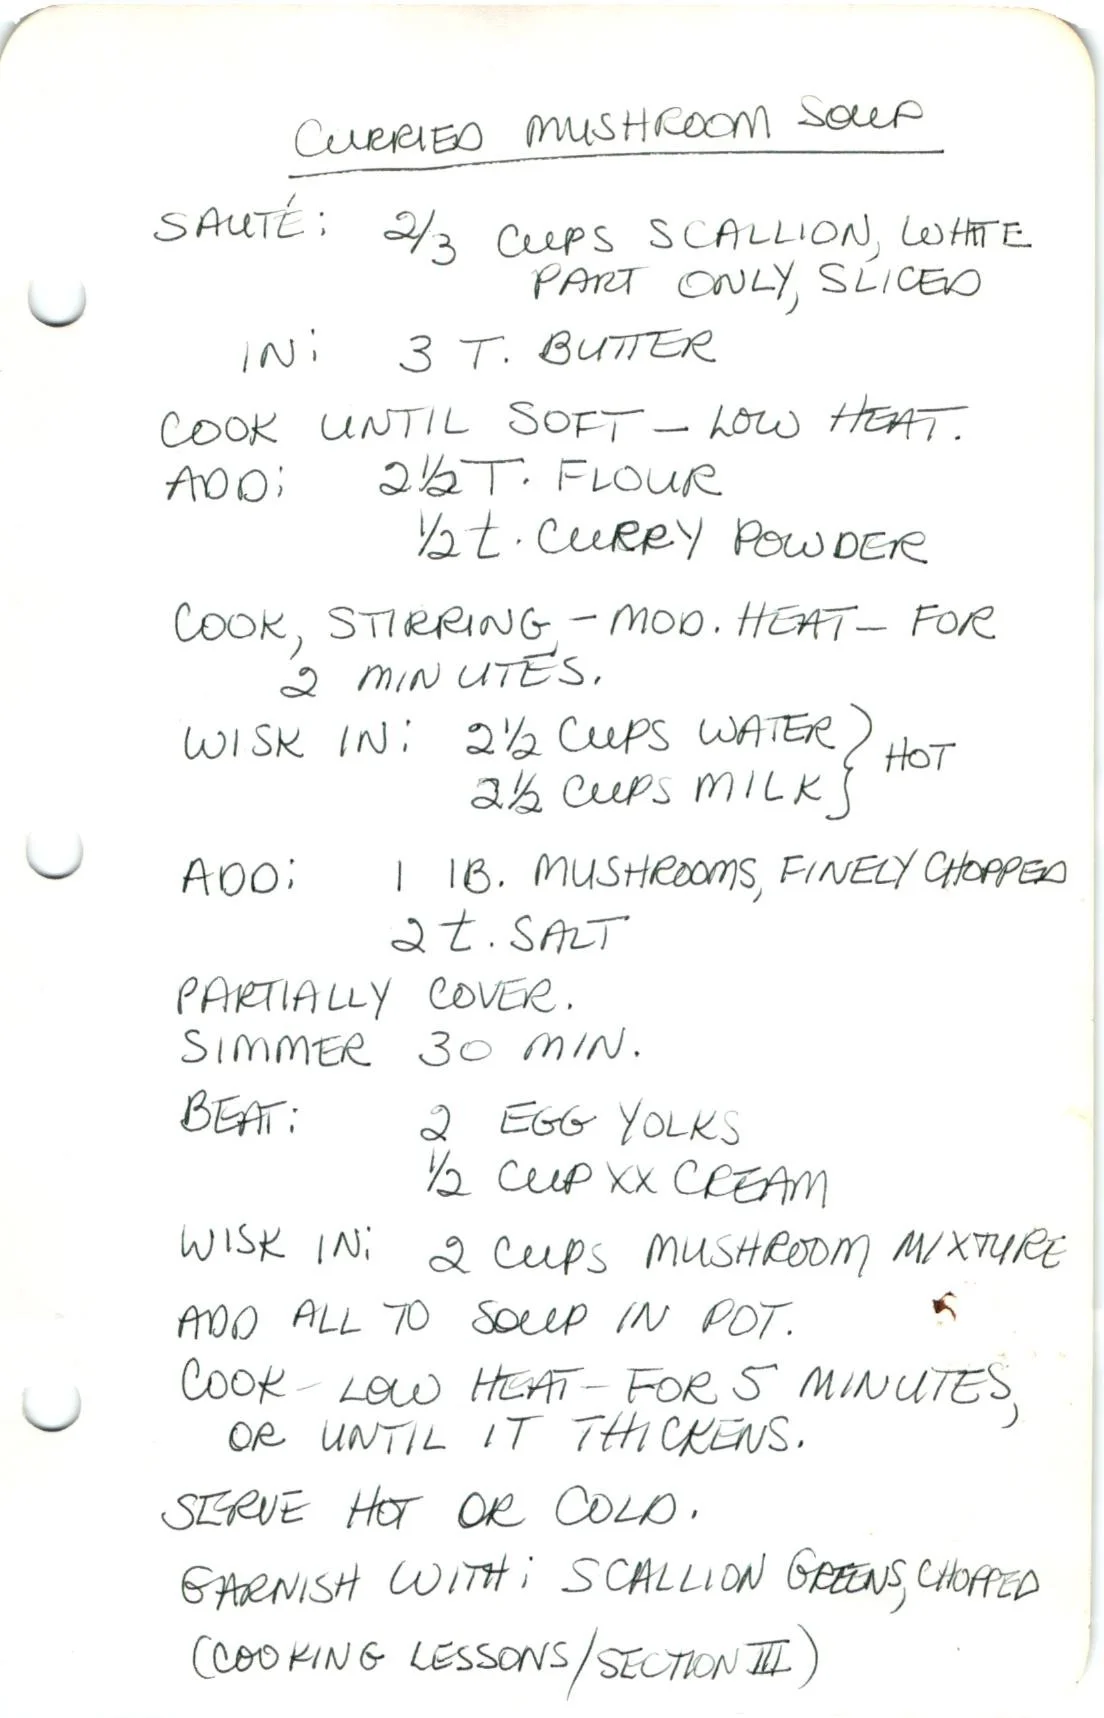 CURRIED MUSHROOM SOUP
SAUTÉ: 2/3 CUPS SCALLION, WHITE
PART ONLY, SLICED
IN: 3 T. BUTTER
COOK UNTIL SOFT – LOW HEAT.
ADD: 2½ T. FLOUR
½ t. CURRY POWDER
COOK, STIRRING, – MOD. HEAT – FOR
2 MINUTES.
WISK IN: 2½ CUPS WATER } HOT
2½ CUPS MILK
ADD: 1 lB. MUSHROOMS, FINELY CHOPPED
2 t. SALT
PARTIALLY COVER.
SIMMER 30 MIN.
BEAT: 2 EGG YOLKS
½ CUP XX CREAM
WISK IN: 2 CUPS MUSHROOM MIXTURE
ADD ALL TO SOUP IN POT.
COOK – LOW HEAT – FOR 5 MINUTES,
OR UNTIL IT THICKENS.
SERVE HOT OR COLD.
GARNISH WITH: SCALLION GREENS, CHOPPED
(COOKING LESSONS/SECTION III)